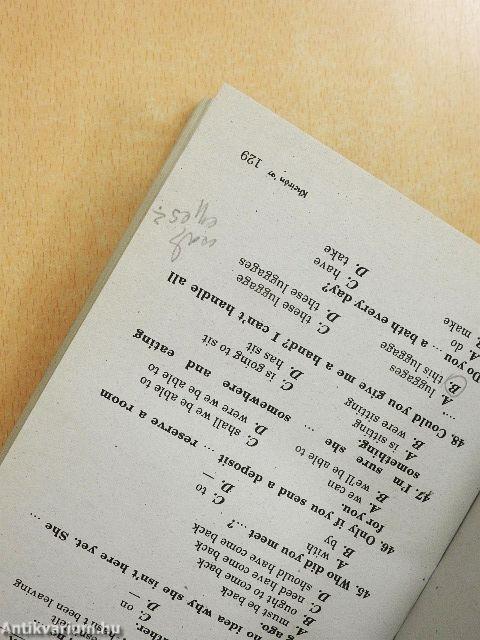 ther.
C. on
D. —
left
't been leaving
no idea why she isn't here yet. She ...
s ago.
A. must be back
B. ought to come back
C. need have come back
D. should have come back
45. Who did you meet ...?
A. with C. to
B. by D. —
46. Only if you send a deposit ... reserve a room
for you.
A. we can C. shall we be able to
B. we'll be able to D. were we be able to
47. I'm sure she ... somewhere and eating
something.
A. is sitting C. is going to sit
B. were sitting D. has sit
48. Could you give me a hand? I can't handle all
...
A. luggages C. these luggage
B. this luggage D. these luggages
Do you ... a bath every day?
A. do C. have
B. make D. take
129
Antikvarium.hu